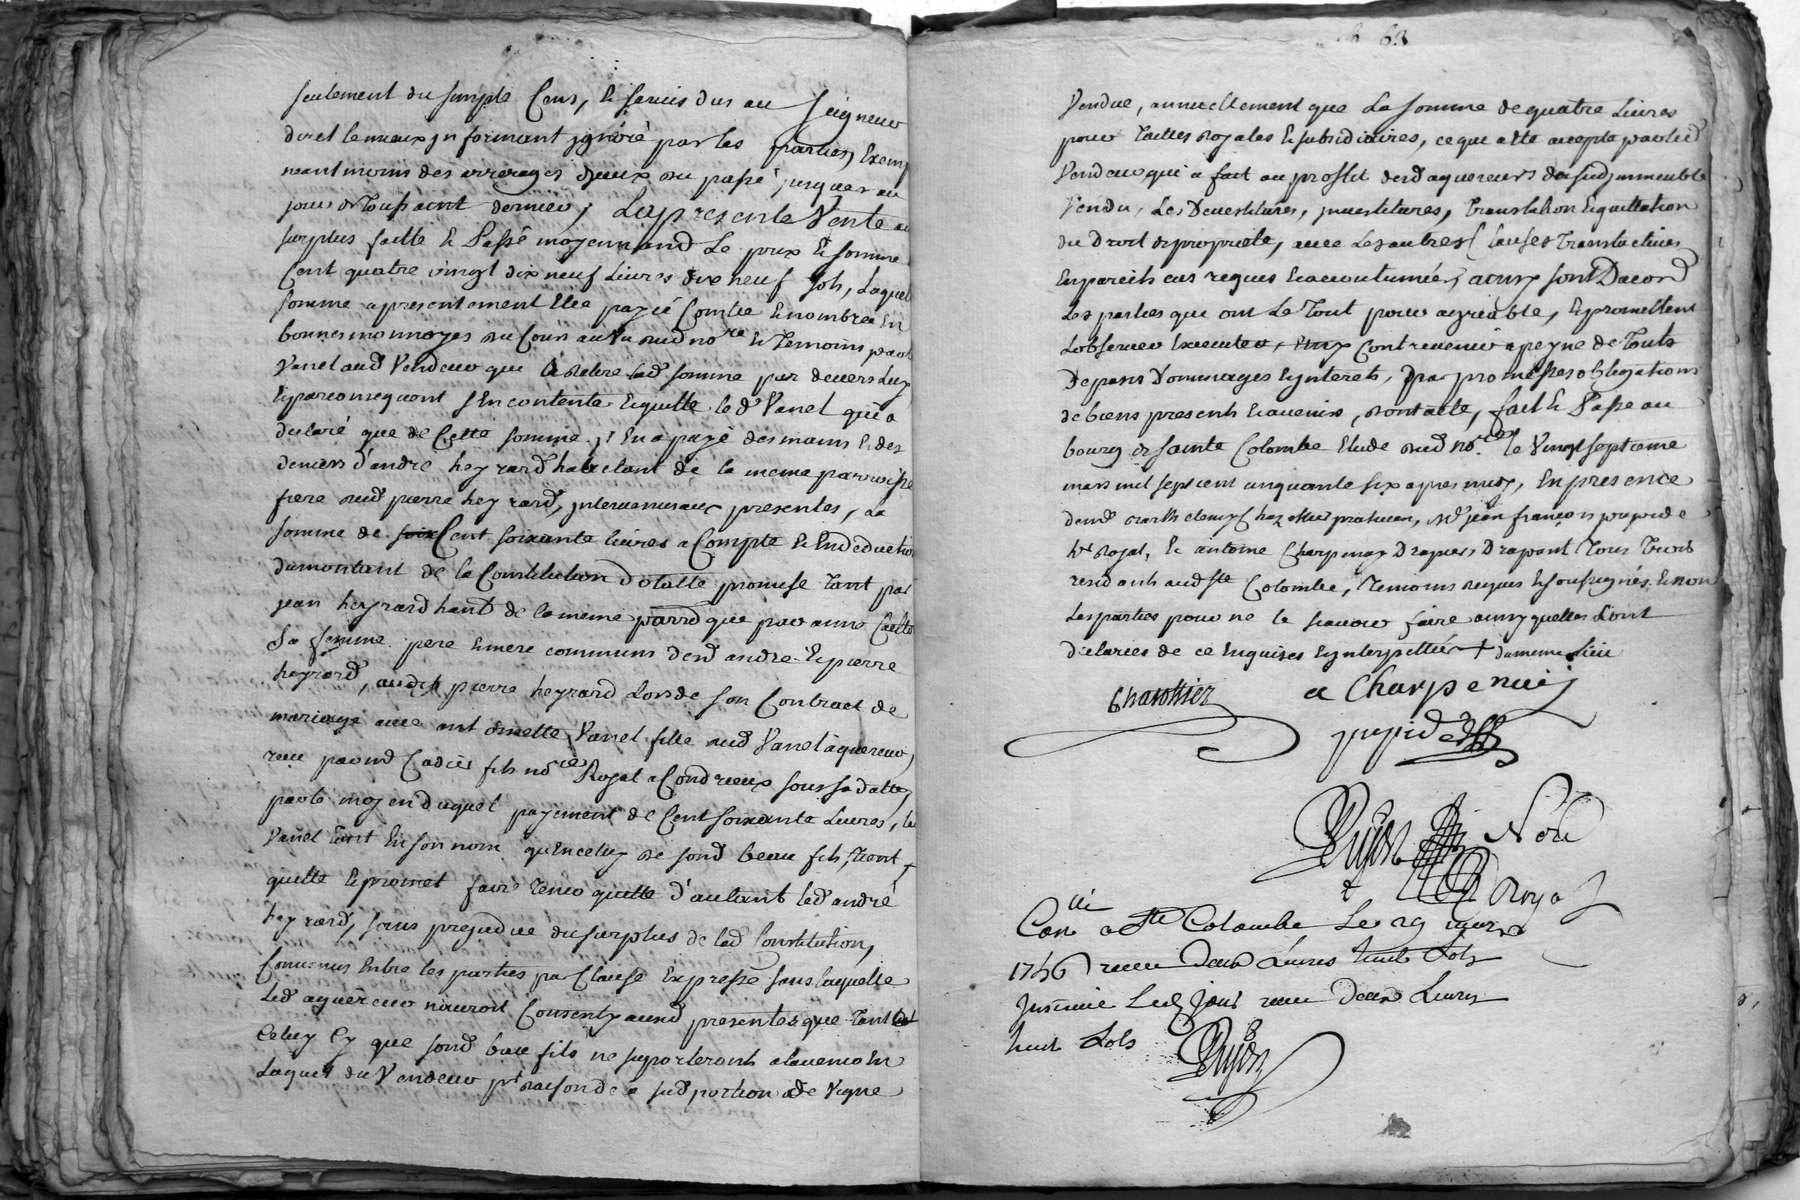 seulement du simple Cens, & servis dus au Seigneur
direct le mieux informant ignoré par les parties, Exemp
neantmoins des arrerages d'jceux du passé jusques au
jour de Toussaint dernier, La presente Vente au
surplus faitte & Passé moyennand Le prix & somme
Cent quatre vingt dix neuf Livres dix neuf sols, Laquel
somme a presentement Eté payié Comtée & nombrée En
bonnes monnoyes du Cours au Vu dud no.re & Temoins par
Vanel aud Vendeur que a Retiré lad somme par devers Luy
& par consequant s'En contente & quitte. led Vanel qui a
declaré que de Cette somme jl En a payé des mains & des
deniers d'andre heyrard habitant de la meme parroisse
frere dud pierre heyrard, jntervenu aux presentes, La
somme de Cent soixante livres a Compte & En deduction
du montant de la Constitution Dotalle promise Tant par
jean heyrard habt de la meme parrd que par anne
Sa femme pere & mere communs desd andre & pierre
heyrard, aud pierre heyrard Lors de son Contract de
mariage avec ant oinette Vanel fille dud Vanel aquereur,
reçu par me Cadier fils no.re Royal a Condrieux sous sa datte,
par le moyen duquel payement de Cent soixante Livres, led
Vanel tant En son nom qu'En celuy de sond beau fils, tient
quitte & promet faire tenir quitte d'autant led andré
heyrard, sans prejudice du surplus de lad Constitution,
Convenus Entre les parties par Clause Expresse sans laquelle
Led aquereur n'auroit Consenty aux presentes que tant
Celuy Cy que sond beau fils ne suporteront a l'avenir En
L'aquit du Vendeur pr raison de la sud portion de Vigne
63
Vendue, annuellement que La somme de quatre Livres
pour Tailles Royales & subsidiaires, ce que a eté accepté par led
Vendeur, qui a fait au proffit desd aquereurs du sud jmmeuble
Vendu, Les Devestitures, jnvestitures, translation & quittation
du Droit de proprieté, avec Les autres Clauses translatives
En pareils cas reques & accoutumées, ainsy sont D'acord
Les parties que ont Le Tout pour agreable, & promettent
L'observer Executer, Contrevenir a peyne de Touts
Depans Dommages & jnterets, par promesses obligations
de biens presents & avenirs, dont acte, fait & Passé au
bourg de sainte Colombe Etude dud no.re le Vingt septieme
mars mil sept cent cinquante six apres midy, En presence
de chazottier praticien, Me jean françois pupide
hr Royal, & antoine Charpenay Drapant Tous trois
residants aud ste Colombe, Temoins requis & soussignés & non
Les parties pour ne le sçavoir faire ainsy quelles L'ont
d'eclarées de ce Enquises & jnterpellées + du meme Lieu
a Charpenay
pupide
Dujon
Nore
Royal
Con.lé a Ste Colombe Le 29 mars
1756 reçu Deux Livres huit Sols
jnsinué Led jour reçu Deux Livres
huit Sols
Dujon